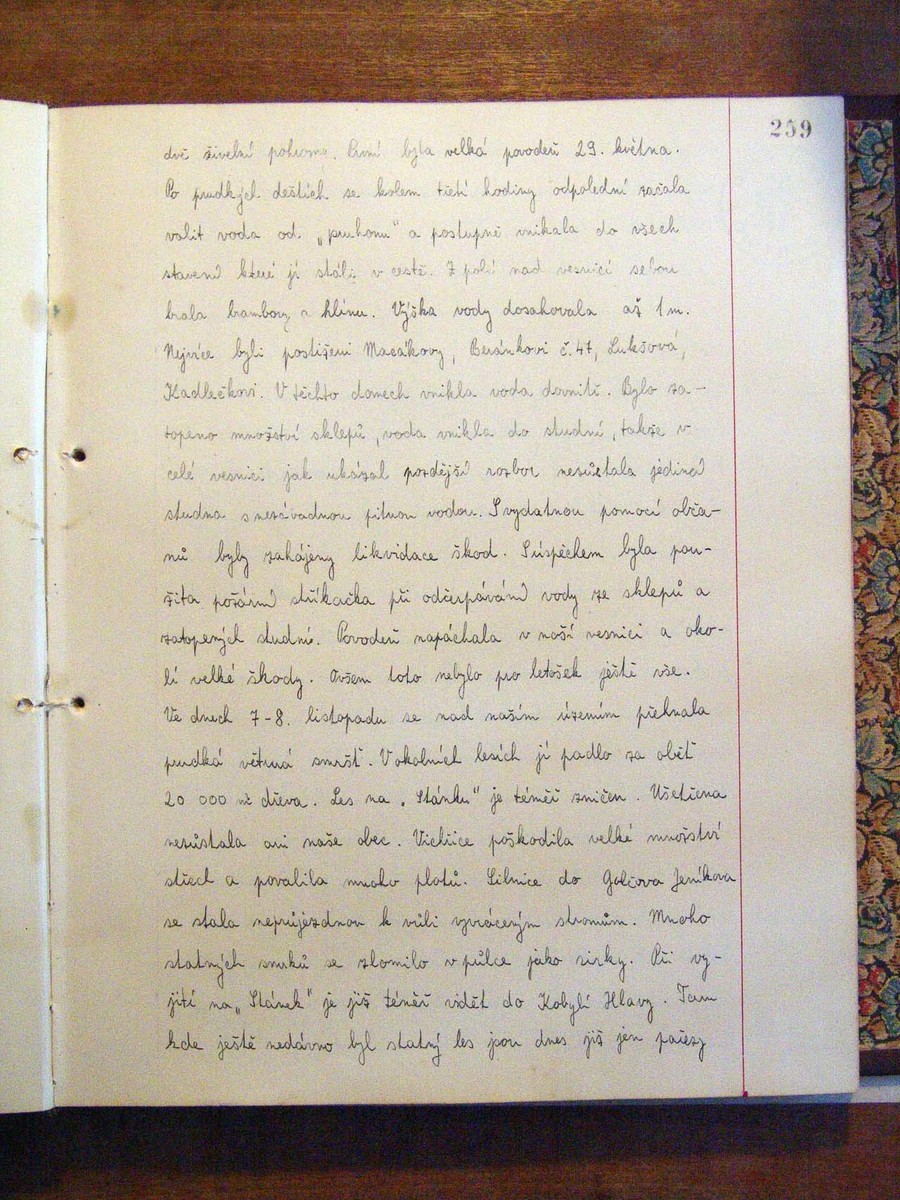 259
dvě živelní pohromy. První byla velká povodeň 29. května.
Po prudkých deštích se kolem třetí hodiny odpolední začala
valit voda od „pruhonu“ a postupně vnikala do všech
stavení které jí stáli v cestě. Z polí nad vesnicí sebou
brala brambory a hlínu. Výška vody dosahovala až 1 m.
Nejvíce byli postiženi Macákovy, Beránkovi č. 47, Lukšová,
Kadlečkovi. V těchto domech vnikla voda dovnitř. Bylo za-
topeno množství sklepů, voda vnikla do studní, takže v
celé vesnici jak ukázal pozdější rozbor nezůstala jediná
studna s nezávadnou pitnou vodou. S vydatnou pomocí obča-
nů byly zahájeny likvidace škod. S úspěchem byla pou-
žita požární stříkačka při odčerpávání vody ze sklepů a
zatopených studní. Povodeň napáchala v naší vesnici a oko-
lí velké škody. Ovšem toto nebylo pro letošek ještě vše.
Ve dnech 7-8. listopadu se nad naším územím přehnala
prudká větrná smršť. V okolních lesích jí padlo za oběť
20 000 m³ dřeva. Les na „Stánku“ je téměř zničen. Ušetřena
nezůstala ani naše obec. Vichřice poškodila velké množství
střech a povalila mnoho plotů. Silnice do Golčova Jeníkova
se stala neprůjezdnou k vůli vyvráceným stromům. Mnoho
statných smrků se zlomilo v půlce jako sirky. Při vy-
jití na „Stánek“ je již téměř vidět do Kobylí Hlavy. Tam
kde ještě nedávno byl statný les jsou dnes již jen pařezy